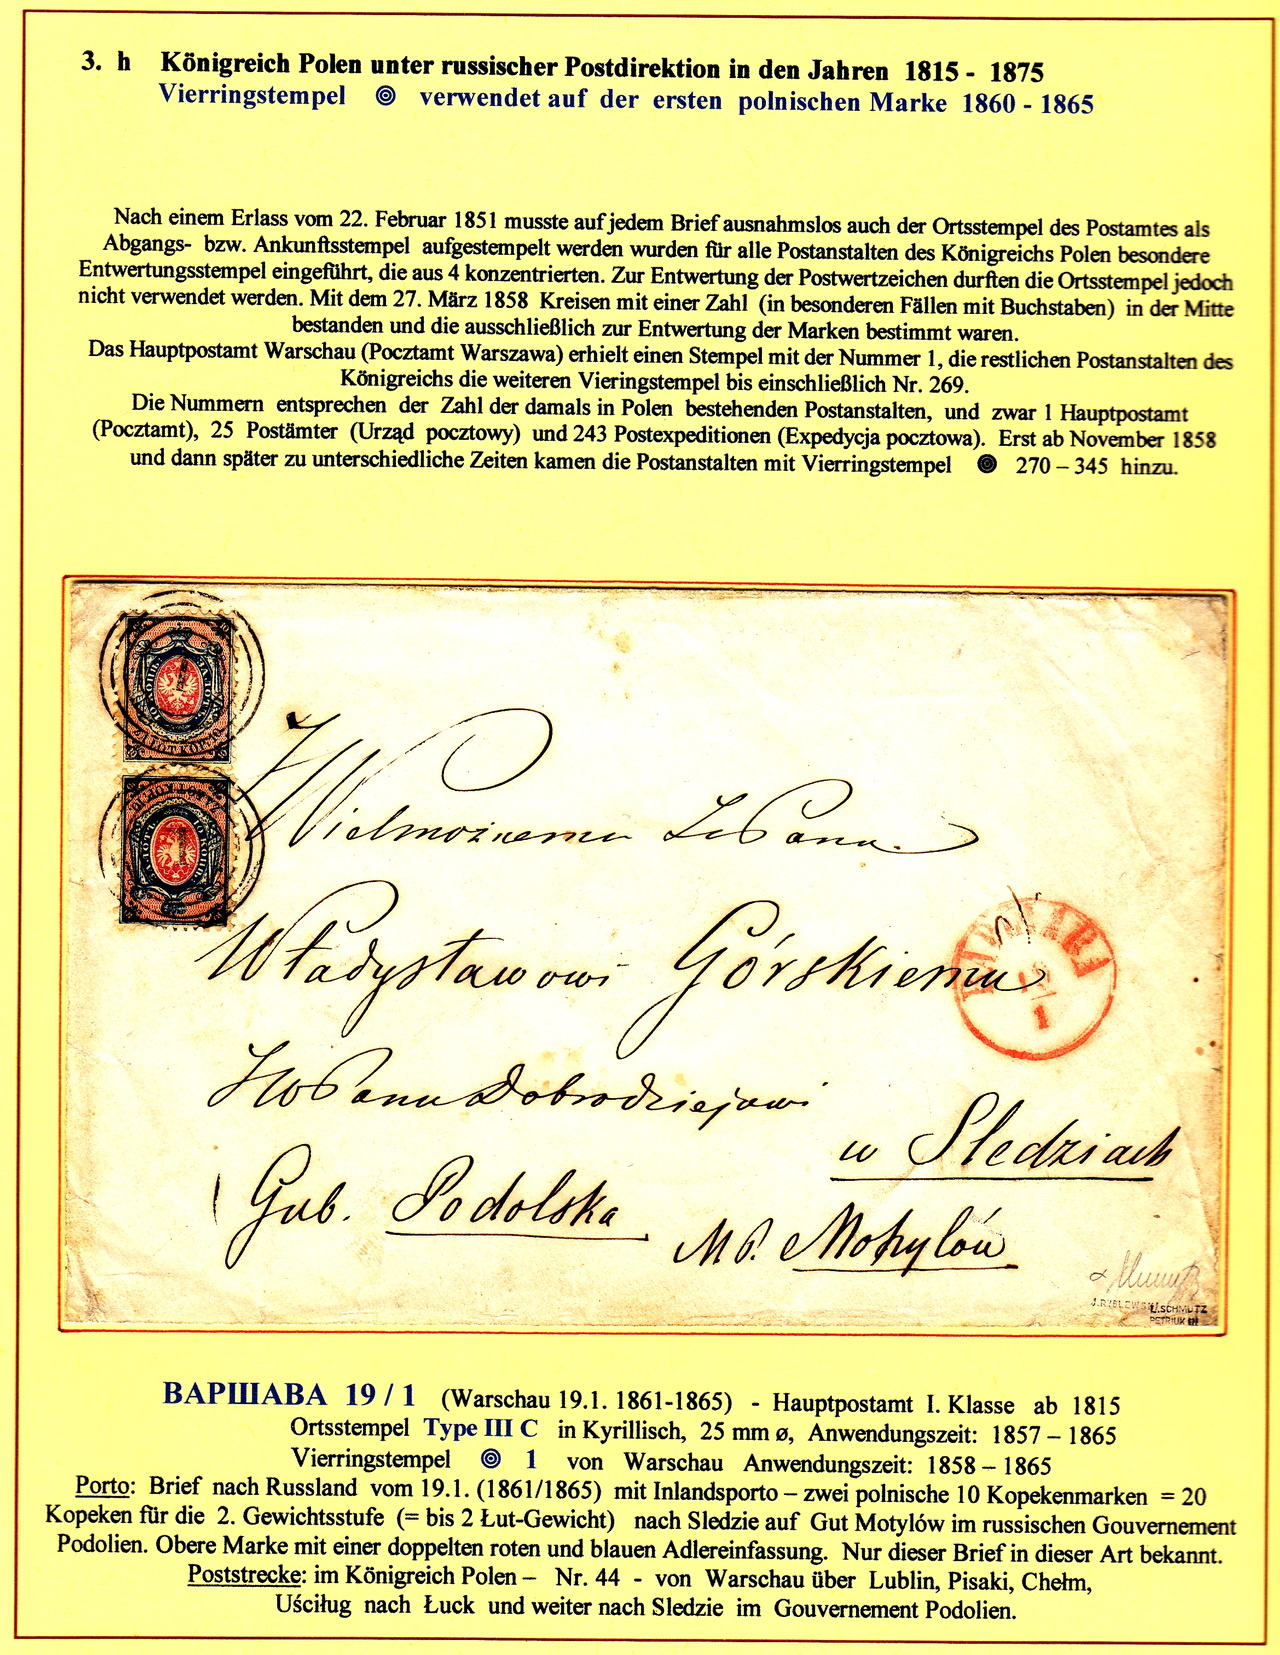 3. h Königreich Polen unter russischer Postdirektion in den Jahren 1815 - 1875
Vierringstempel verwendet auf der ersten polnischen Marke 1860 - 1865
Nach einem Erlass vom 22. Februar 1851 musste auf jedem Brief ausnahmslos auch der Ortsstempel des Postamtes als
Abgangs- bzw. Ankunftsstempel aufgestempelt werden wurden für alle Postanstalten des Königreichs Polen besondere
Entwertungsstempel eingeführt, die aus 4 konzentrierten. Zur Entwertung der Postwertzeichen durften die Ortsstempel jedoch
nicht verwendet werden. Mit dem 27. März 1858 Kreisen mit einer Zahl (in besonderen Fällen mit Buchstaben) in der Mitte
bestanden und die ausschließlich zur Entwertung der Marken bestimmt waren.
Das Hauptpostamt Warschau (Pocztamt Warszawa) erhielt einen Stempel mit der Nummer 1, die restlichen Postanstalten des
Königreichs die weiteren Vieringstempel bis einschließlich Nr. 269.
Die Nummern entsprechen der Zahl der damals in Polen bestehenden Postanstalten, und zwar 1 Hauptpostamt
(Pocztamt), 25 Postämter (Urząd pocztowy) und 243 Postexpeditionen (Expedycja pocztowa). Erst ab November 1858
und dann später zu unterschiedliche Zeiten kamen die Postanstalten mit Vierringstempel 270 – 345 hinzu.
1
1
Wielmożnemu JW Panu
Władysławowi Górskiemu
19/1
JWPanu Dobrodziejowi
w Sledziach
Gub. Podolska
Mohylów
J.RYBLEWSKI
L.SCHMUTZ
PETRIUK
ВАРШАВА 19 / 1 (Warschau 19.1. 1861-1865) - Hauptpostamt I. Klasse ab 1815
Ortsstempel Type III C in Kyrillisch, 25 mm ø, Anwendungszeit: 1857 – 1865
Vierringstempel 1 von Warschau Anwendungszeit: 1858 – 1865
Porto: Brief nach Russland vom 19.1. (1861/1865) mit Inlandsporto – zwei polnische 10 Kopekenmarken = 20
Kopeken für die 2. Gewichtsstufe (= bis 2 Łut-Gewicht) nach Sledzie auf Gut Motylów im russischen Gouvernement
Podolien. Obere Marke mit einer doppelten roten und blauen Adlereinfassung. Nur dieser Brief in dieser Art bekannt.
Poststrecke: im Königreich Polen – Nr. 44 - von Warschau über Lublin, Pisaki, Chełm,
Uściług nach Łuck und weiter nach Sledzie im Gouvernement Podolien.